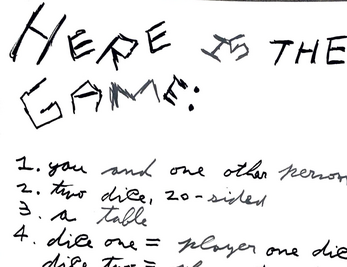 HERE IS THE
GAME:
1. you and one other person
2. two dice, 20-sided
3. a table
4. dice one = player one dic
dice two =